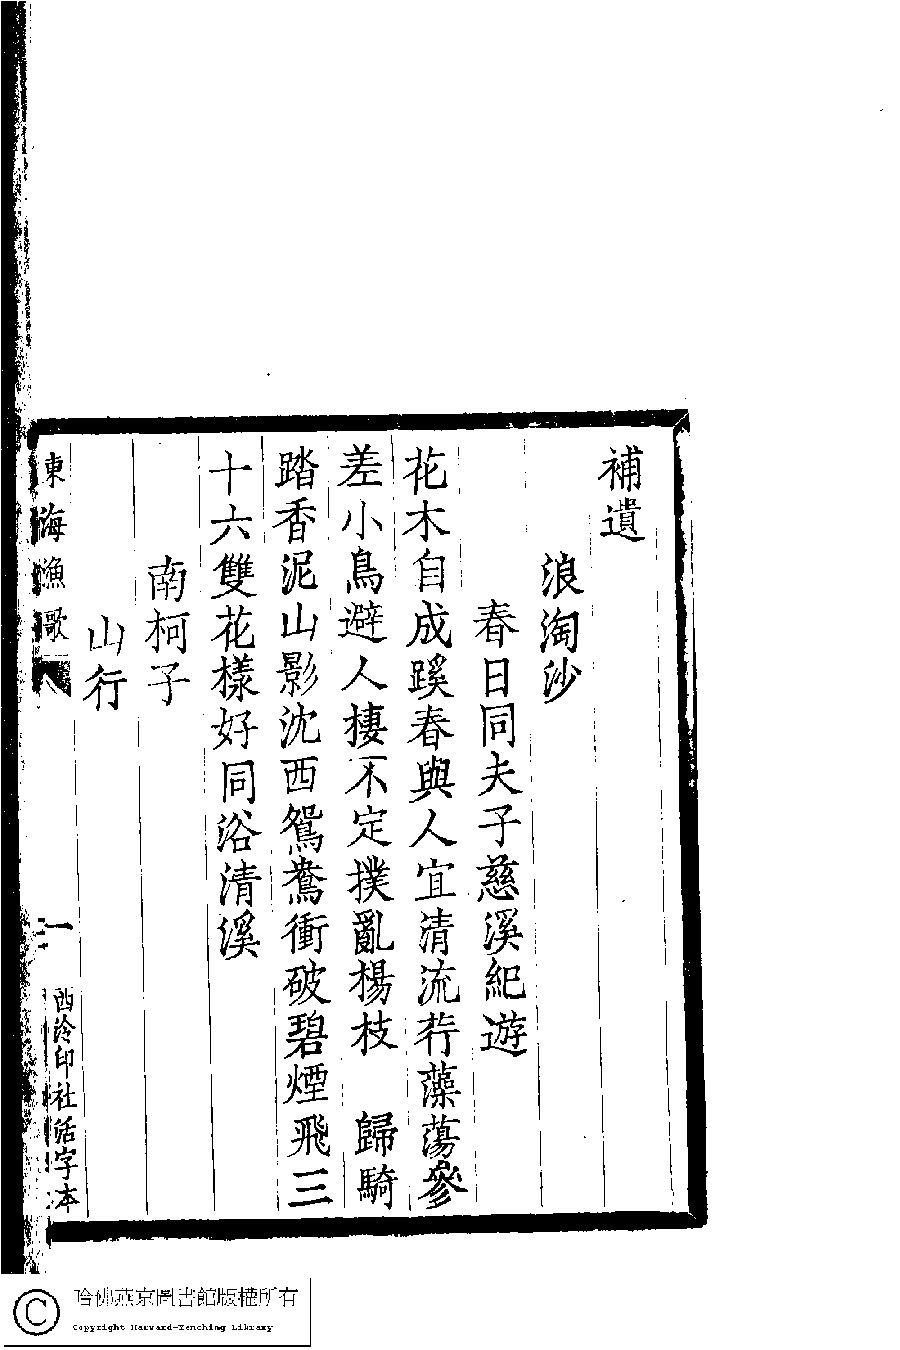 補遺
浪淘沙
春日同夫子慈溪紀遊
花木自成蹊春與人宜清流荇藻蕩參
差小鳥避人棲不定撲亂楊枝　歸騎
踏香泥山影沈西鴛鴦衝破碧煙飛三
十六雙花樣好同浴清溪
南柯子
山行
東海漁歌
一
西泠印社活字本
哈佛燕京圖書館版權所有
Copyright Harvard-Yenching Library